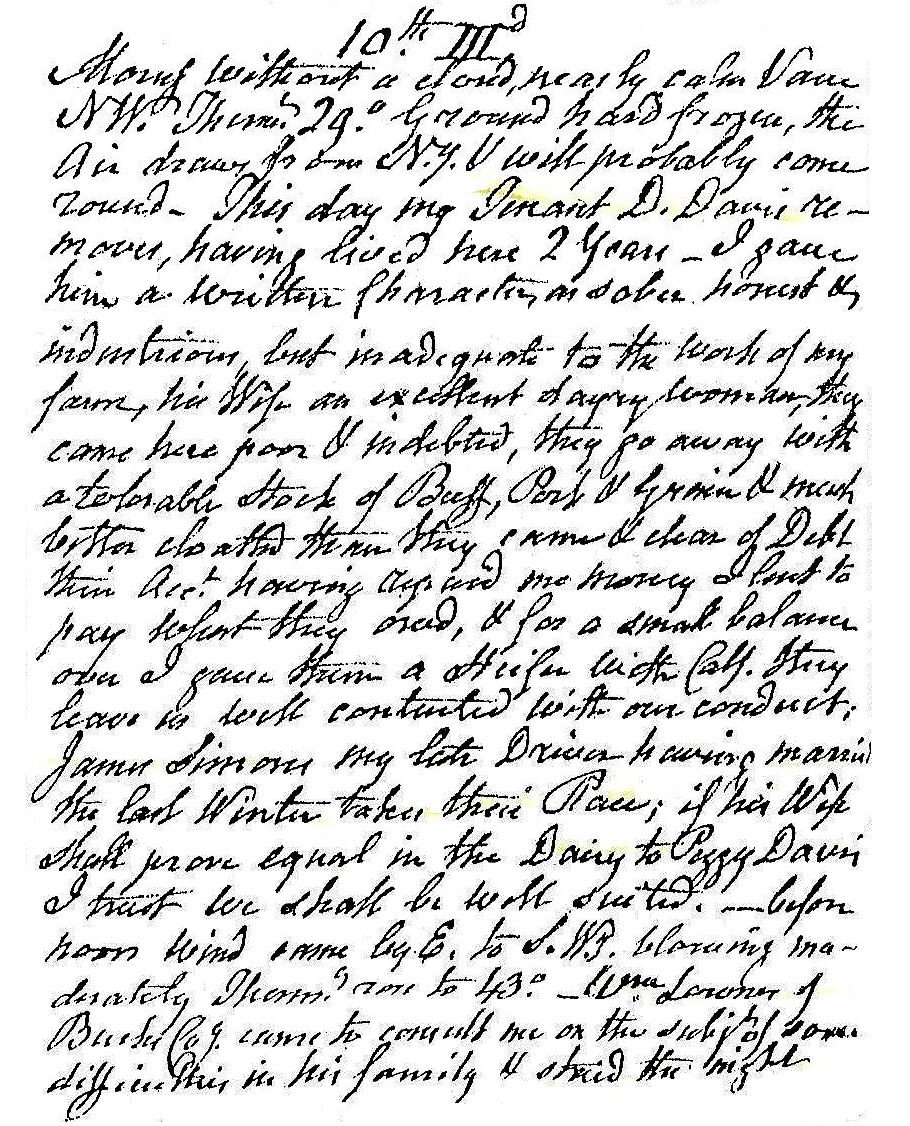 10th IIId
Morng without a cloud, nearly calm Vane
NWt. Thermr. 29.° Ground hard frozen, the
Air draws from N.Y. & will probably come
round - This day my Tenant D. Davis re-
moves, having lived here 2 Years - I gave
him a written Character, as sober honest &
industrious, but inadequate to the work of my
farm, his Wife an excellent dayry woman, they
came here poor & indebted, they go away with
a tolerable Stock of Beeff, Pork & Grain & much
better cloathd than they came & clear of Debt
their Acct. having repaid me money I lent to
pay what they owed, & for a small balance
over I gave them a Heifer with Calf. they
leave us well contented with our conduct;
James Simons my late Driver having married
the last Winter takes their Place; if his Wife
shall prove equal in the Dairy to Peggy Davis
I trust we shall be well suited. — before
noon wind came by E. to S.W. blowing mo-
derately Thermr. rose to 43° - Wm
Bucks Coy. came to consult me on the subjt. of some
difficulties in his family & staid the night